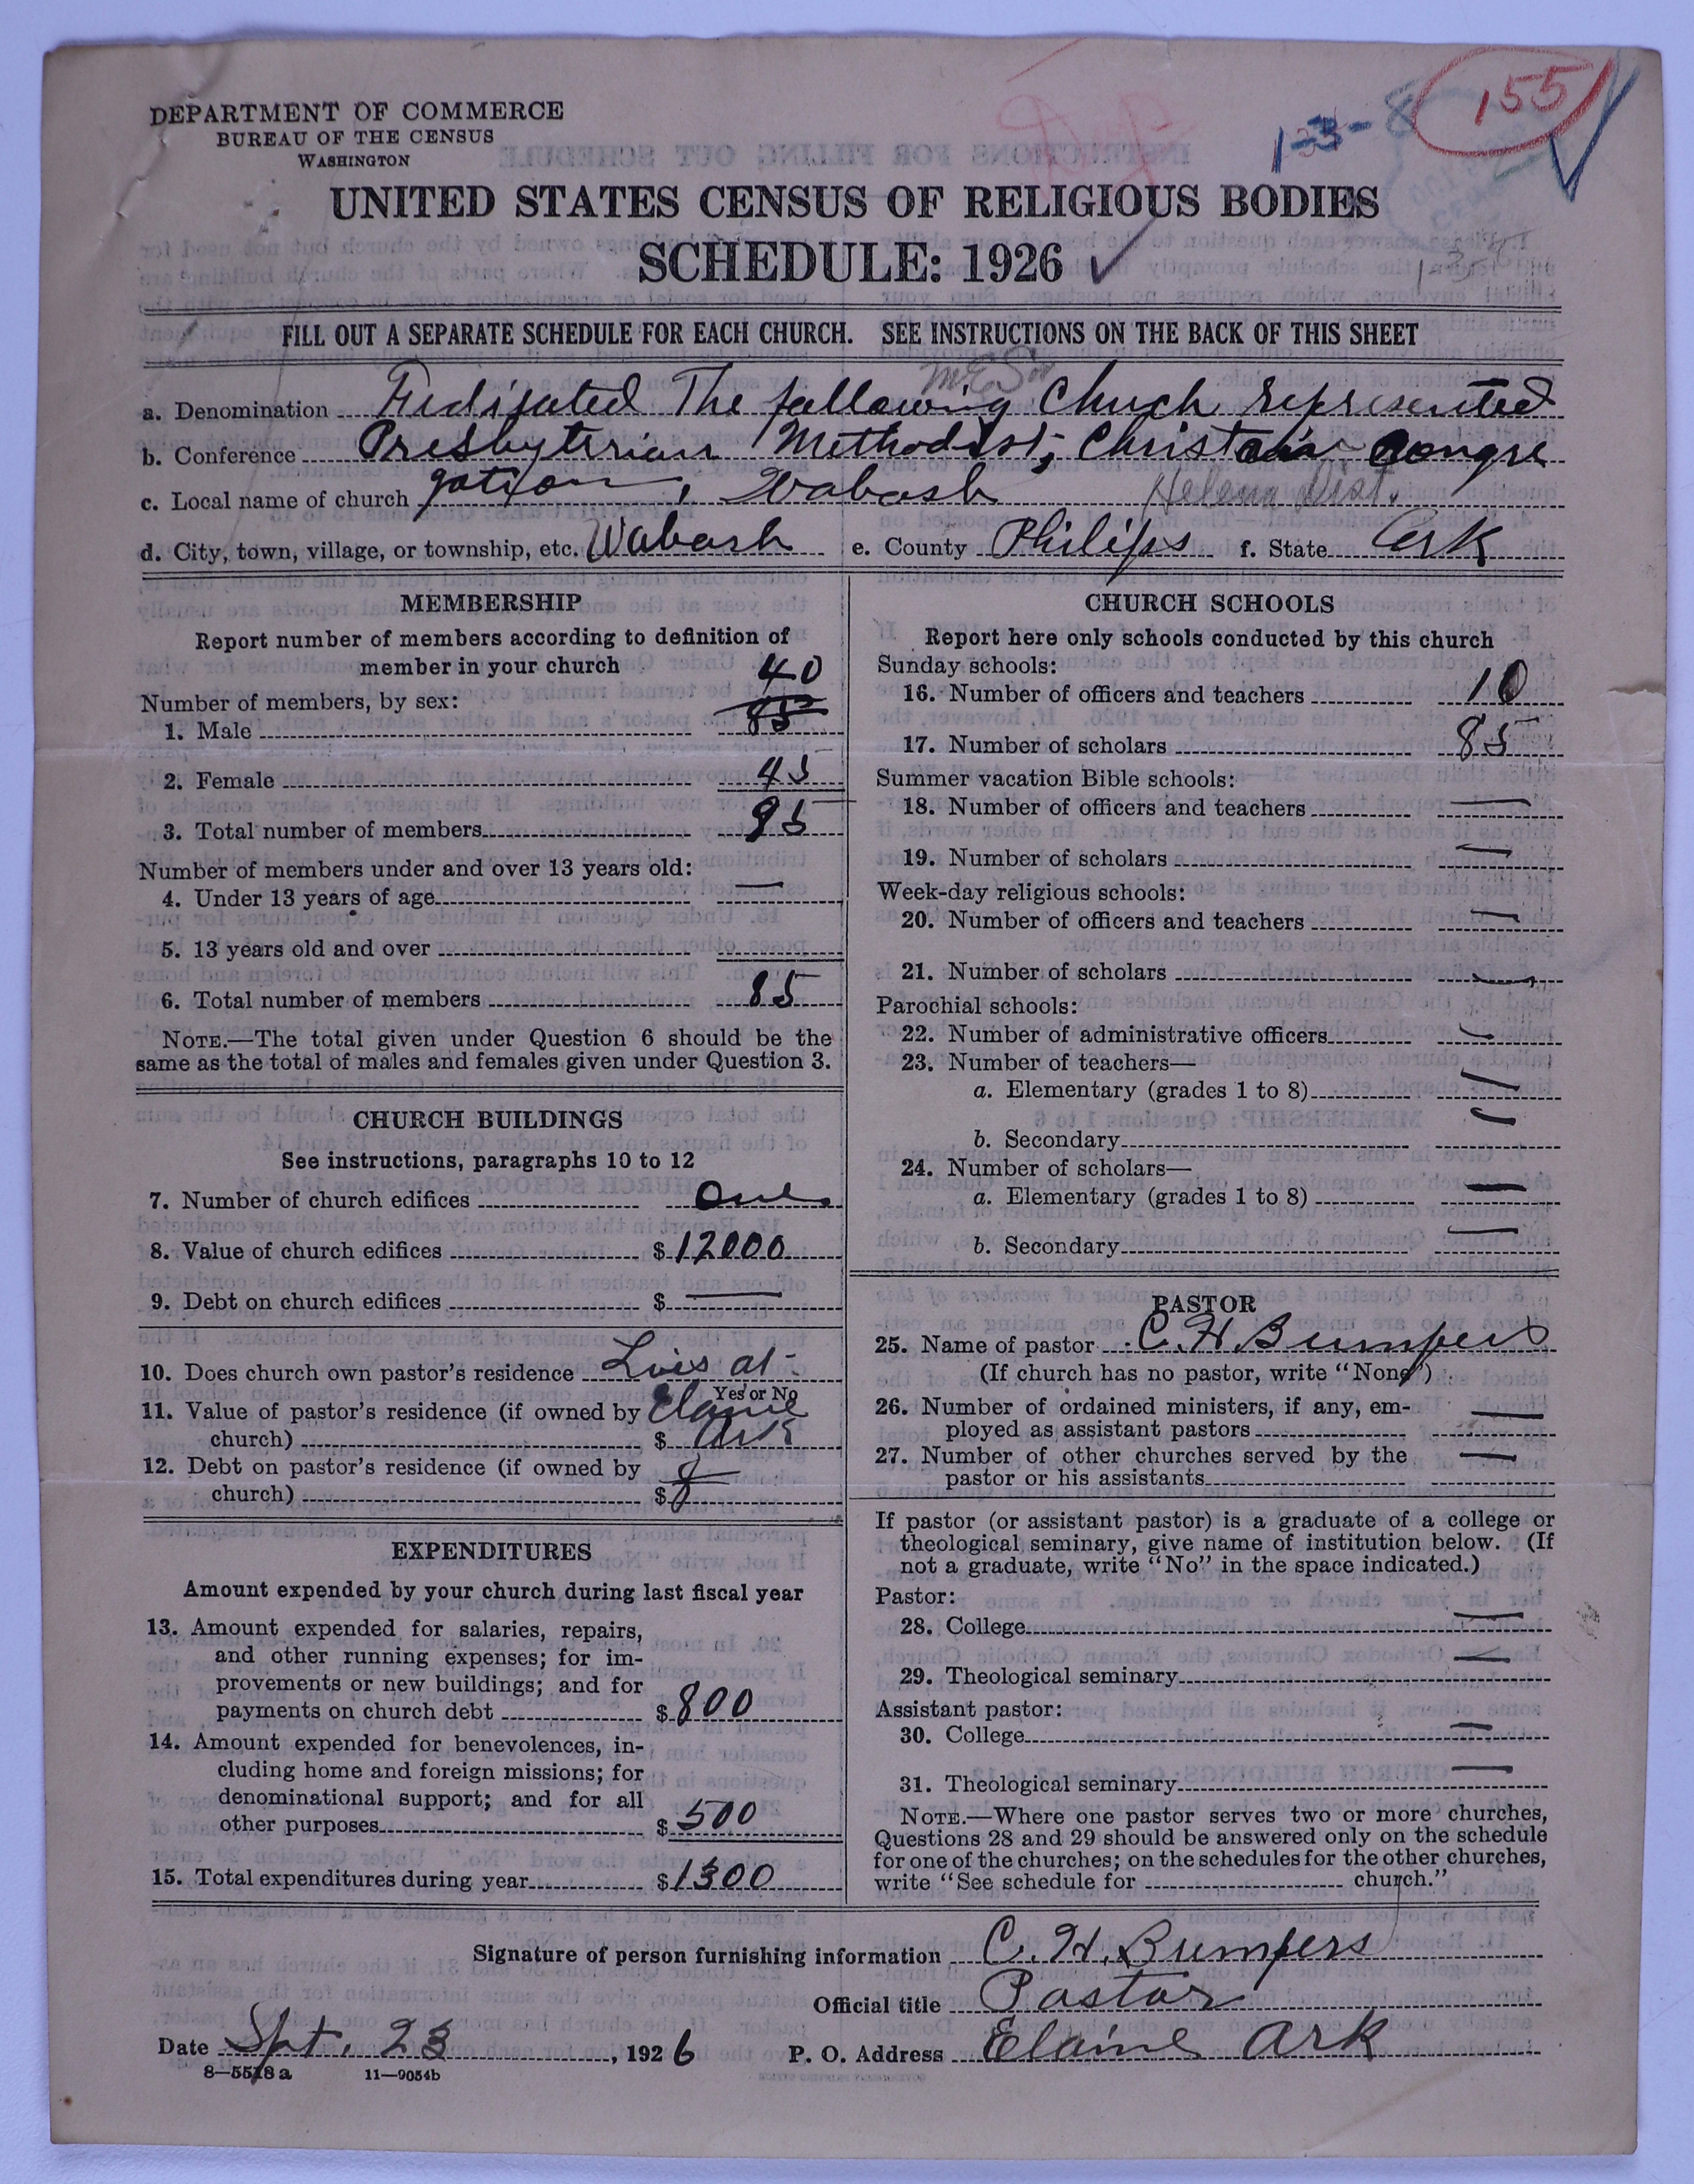 155
1-3-8
DEPARTMENT OF COMMERCE
BUREAU OF THE CENSUS
WASHINGTON
UNITED STATES CENSUS OF RELIGIOUS BODIES
SCHEDULE: 1926
FILL OUT A SEPARATE SCHEDULE FOR EACH CHURCH. SEE INSTRUCTIONS ON THE BACK OF THIS SHEET
M E So
a. Denomination The following Church represented
b. Conference Presbyterian Methodist, Christain Congre
c. Local name of church gation, Wabash Helena Dist.
d. City, town, village, or township, etc. Wabash e. County Philips f. State Ark
MEMBERSHIP
Report number of members according to definition of
member in your church
40
Number of members, by sex:
1. Male 85
2. Female 45
3. Total number of members 85
Number of members under and over 13 years old:
4. Under 13 years of age —
5. 13 years old and over
6. Total number of members 85
NOTE.—The total given under Question 6 should be the
same as the total of males and females given under Question 3.
CHURCH BUILDINGS
See instructions, paragraphs 10 to 12
7. Number of church edifices One
8. Value of church edifices $12000
9. Debt on church edifices $ —
10. Does church own pastor's residence Lives at
Yes or No
11. Value of pastor's residence (if owned by Elaine
church) $ Ark
12. Debt on pastor's residence (if owned by
church) $
EXPENDITURES
Amount expended by your church during last fiscal year
13. Amount expended for salaries, repairs,
and other running expenses; for im-
provements or new buildings; and for
payments on church debt $800
14. Amount expended for benevolences, in-
cluding home and foreign missions; for
denominational support; and for all
other purposes $500
15. Total expenditures during year $1300
CHURCH SCHOOLS
Report here only schools conducted by this church
Sunday schools:
16. Number of officers and teachers 10
17. Number of scholars 85
Summer vacation Bible schools:
18. Number of officers and teachers —
19. Number of scholars —
Week-day religious schools:
20. Number of officers and teachers —
21. Number of scholars —
Parochial schools:
22. Number of administrative officers —
23. Number of teachers—
a. Elementary (grades 1 to 8) —
b. Secondary —
24. Number of scholars—
a. Elementary (grades 1 to 8) —
b. Secondary —
PASTOR
25. Name of pastor C. H. Bumpers
(If church has no pastor, write "None")
26. Number of ordained ministers, if any, em-
ployed as assistant pastors —
27. Number of other churches served by the
pastor or his assistants —
If pastor (or assistant pastor) is a graduate of a college or
theological seminary, give name of institution below. (If
not a graduate, write "No" in the space indicated.)
Pastor:
28. College —
29. Theological seminary —
Assistant pastor:
30. College —
31. Theological seminary —
NOTE.—Where one pastor serves two or more churches,
Questions 28 and 29 should be answered only on the schedule
for one of the churches; on the schedules for the other churches,
write "See schedule for church."
Signature of person furnishing information C. H. Bumpers
Official title Pastor
Date Spt. 23, 1926 P. O. Address Elaine Ark
8—5518 a 11—9054b